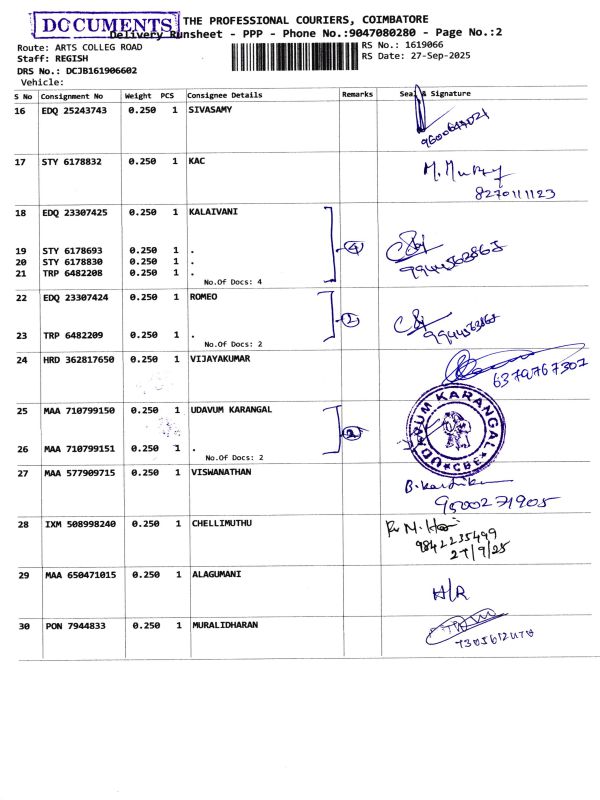 DOCUMENTS
THE PROFESSIONAL COURIERS, COIMBATORE
Delivery Runsheet - PPP - Phone No.:9047080280 - Page No.:2
Route: ARTS COLLEG ROAD
RS No.: 1619066
Staff: REGISH
RS Date: 27-Sep-2025
DRS No.: DCJB161906602
Vehicle:
S No Consignment No Weight PCS Consignee Details Remarks Seal & Signature
16 EDQ 25243743 0.250 1 SIVASAMY
17 STY 6178832 0.250 1 KAC
8270111123
18 EDQ 23307425 0.250 1 KALAIVANI
19 STY 6178693 0.250 1 .
20 STY 6178830 0.250 1 .
4
21 TRP 6482208 0.250 1 .
No.Of Docs: 4
22 EDQ 23307424 0.250 1 ROMEO
2
23 TRP 6482209 0.250 1 .
No.Of Docs: 2
24 HRD 362817650 0.250 1 VIJAYAKUMAR
6379767307
25 MAA 710799150 0.250 1 UDAVUM KARANGAL
2
UDAVUM KARANGAL
CBE
26 MAA 710799151 0.250 1 .
No.Of Docs: 2
27 MAA 577909715 0.250 1 VISWANATHAN
9500271905
28 IXM 508998240 0.250 1 CHELLIMUTHU
9842235499
27/9/25
29 MAA 650471015 0.250 1 ALAGUMANI
H/R
30 PON 7944833 0.250 1 MURALIDHARAN